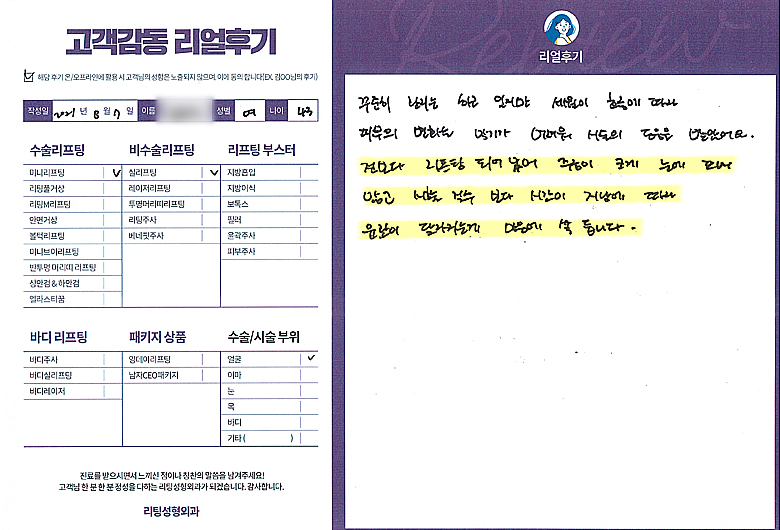 고객감동 리얼후기
해당 후기 온/오프라인에 활용 시 고객님의 성함은 노출되지 않으며, 이에 동의 합니다(EX. 김OO님의 후기)
작성일 2021년 8월 7일 이름 성별 여 나이 43
수술리프팅
미니리프팅 ✓
리팅풀거상
리팅M리프팅
안면거상
볼텍리프팅
미니브이리프팅
반투명 미리띠 리프팅
상안검 & 하안검
엘라스티꿈
비수술리프팅
실리프팅 ✓
레이저리프팅
투명머리띠리프팅
리팅주사
베네핏주사
리프팅 부스터
지방흡입
지방이식
보톡스
필러
윤곽주사
피부주사
바디 리프팅
바디주사
바디실리프팅
바디레이저
패키지 상품
앙데이리프팅
남자CEO패키지
수술/시술 부위
얼굴 ✓
이마
눈
목
바디
기타( )
진료를 받으시면서 느끼신 점이나 칭찬의 말씀을 남겨주세요!
고객님 한 분 한 분 정성을 다하는 리팅성형외과가 되겠습니다. 감사합니다.
리팅성형외과
Review
리얼후기
꾸준히 관리는 하고 있지만 세월이 흐름에 따라
피부의 변화는 막기가 어려워 시술의 도움을 받았어요.
전보다 리프팅 되어 있어 주름이 크게 눈에 띄지
않고 시술 직후 보다 시간이 지남에 따라
윤곽이 달라지는게 마음에 쏙 듭니다.